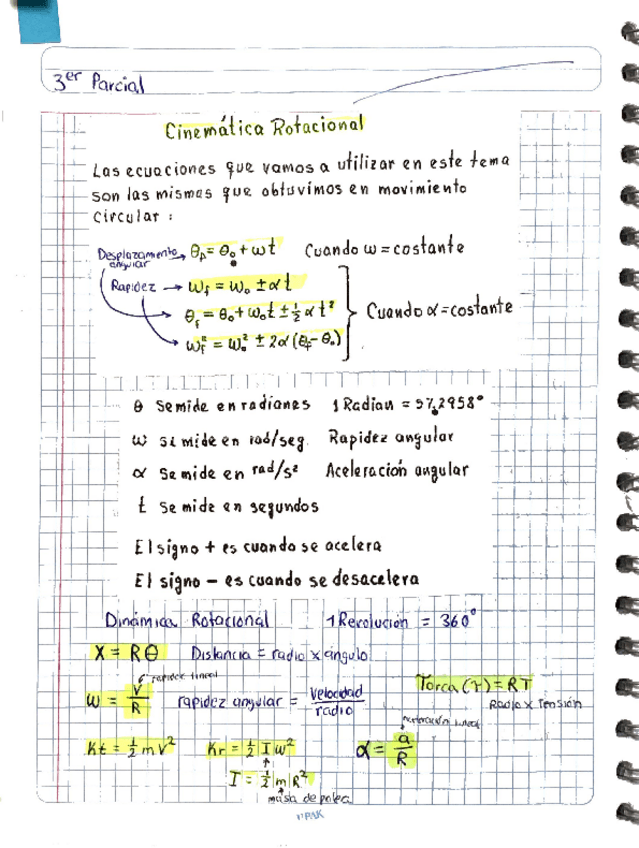 3er Parcial
Cinemática Rotacional
Las ecuaciones que vamos a utilizar en este tema
son las mismas que obtuvimos en movimiento
circular :
Desplazamiento angular → θf = θ₀ + ωt Cuando ω = costante
Rapidez → ωf = ω₀ ± αt
θf = θ₀ + ω₀t ± ½ αt² Cuando α = costante
ωf² = ω₀² ± 2α(θf - θ₀)
θ Se mide en radianes 1 Radian = 57.2958°
ω Se mide en rad/seg. Rapidez angular
α Se mide en rad/s² Aceleración angular
t Se mide en segundos
El signo + es cuando se acelera
El signo - es cuando se desacelera
Dinámica Rotacional 1 Revolución = 360°
X = Rθ Distancia = radio x ángulo
rapidez lineal
ω = V/R rapidez angular = velocidad/radio
Torca (τ) = RT
Radio x Tensión
aceleración lineal
Kt = ½ m V² Kr = ½ I ω² α = a/R
I = ½ m R²
masa de polea